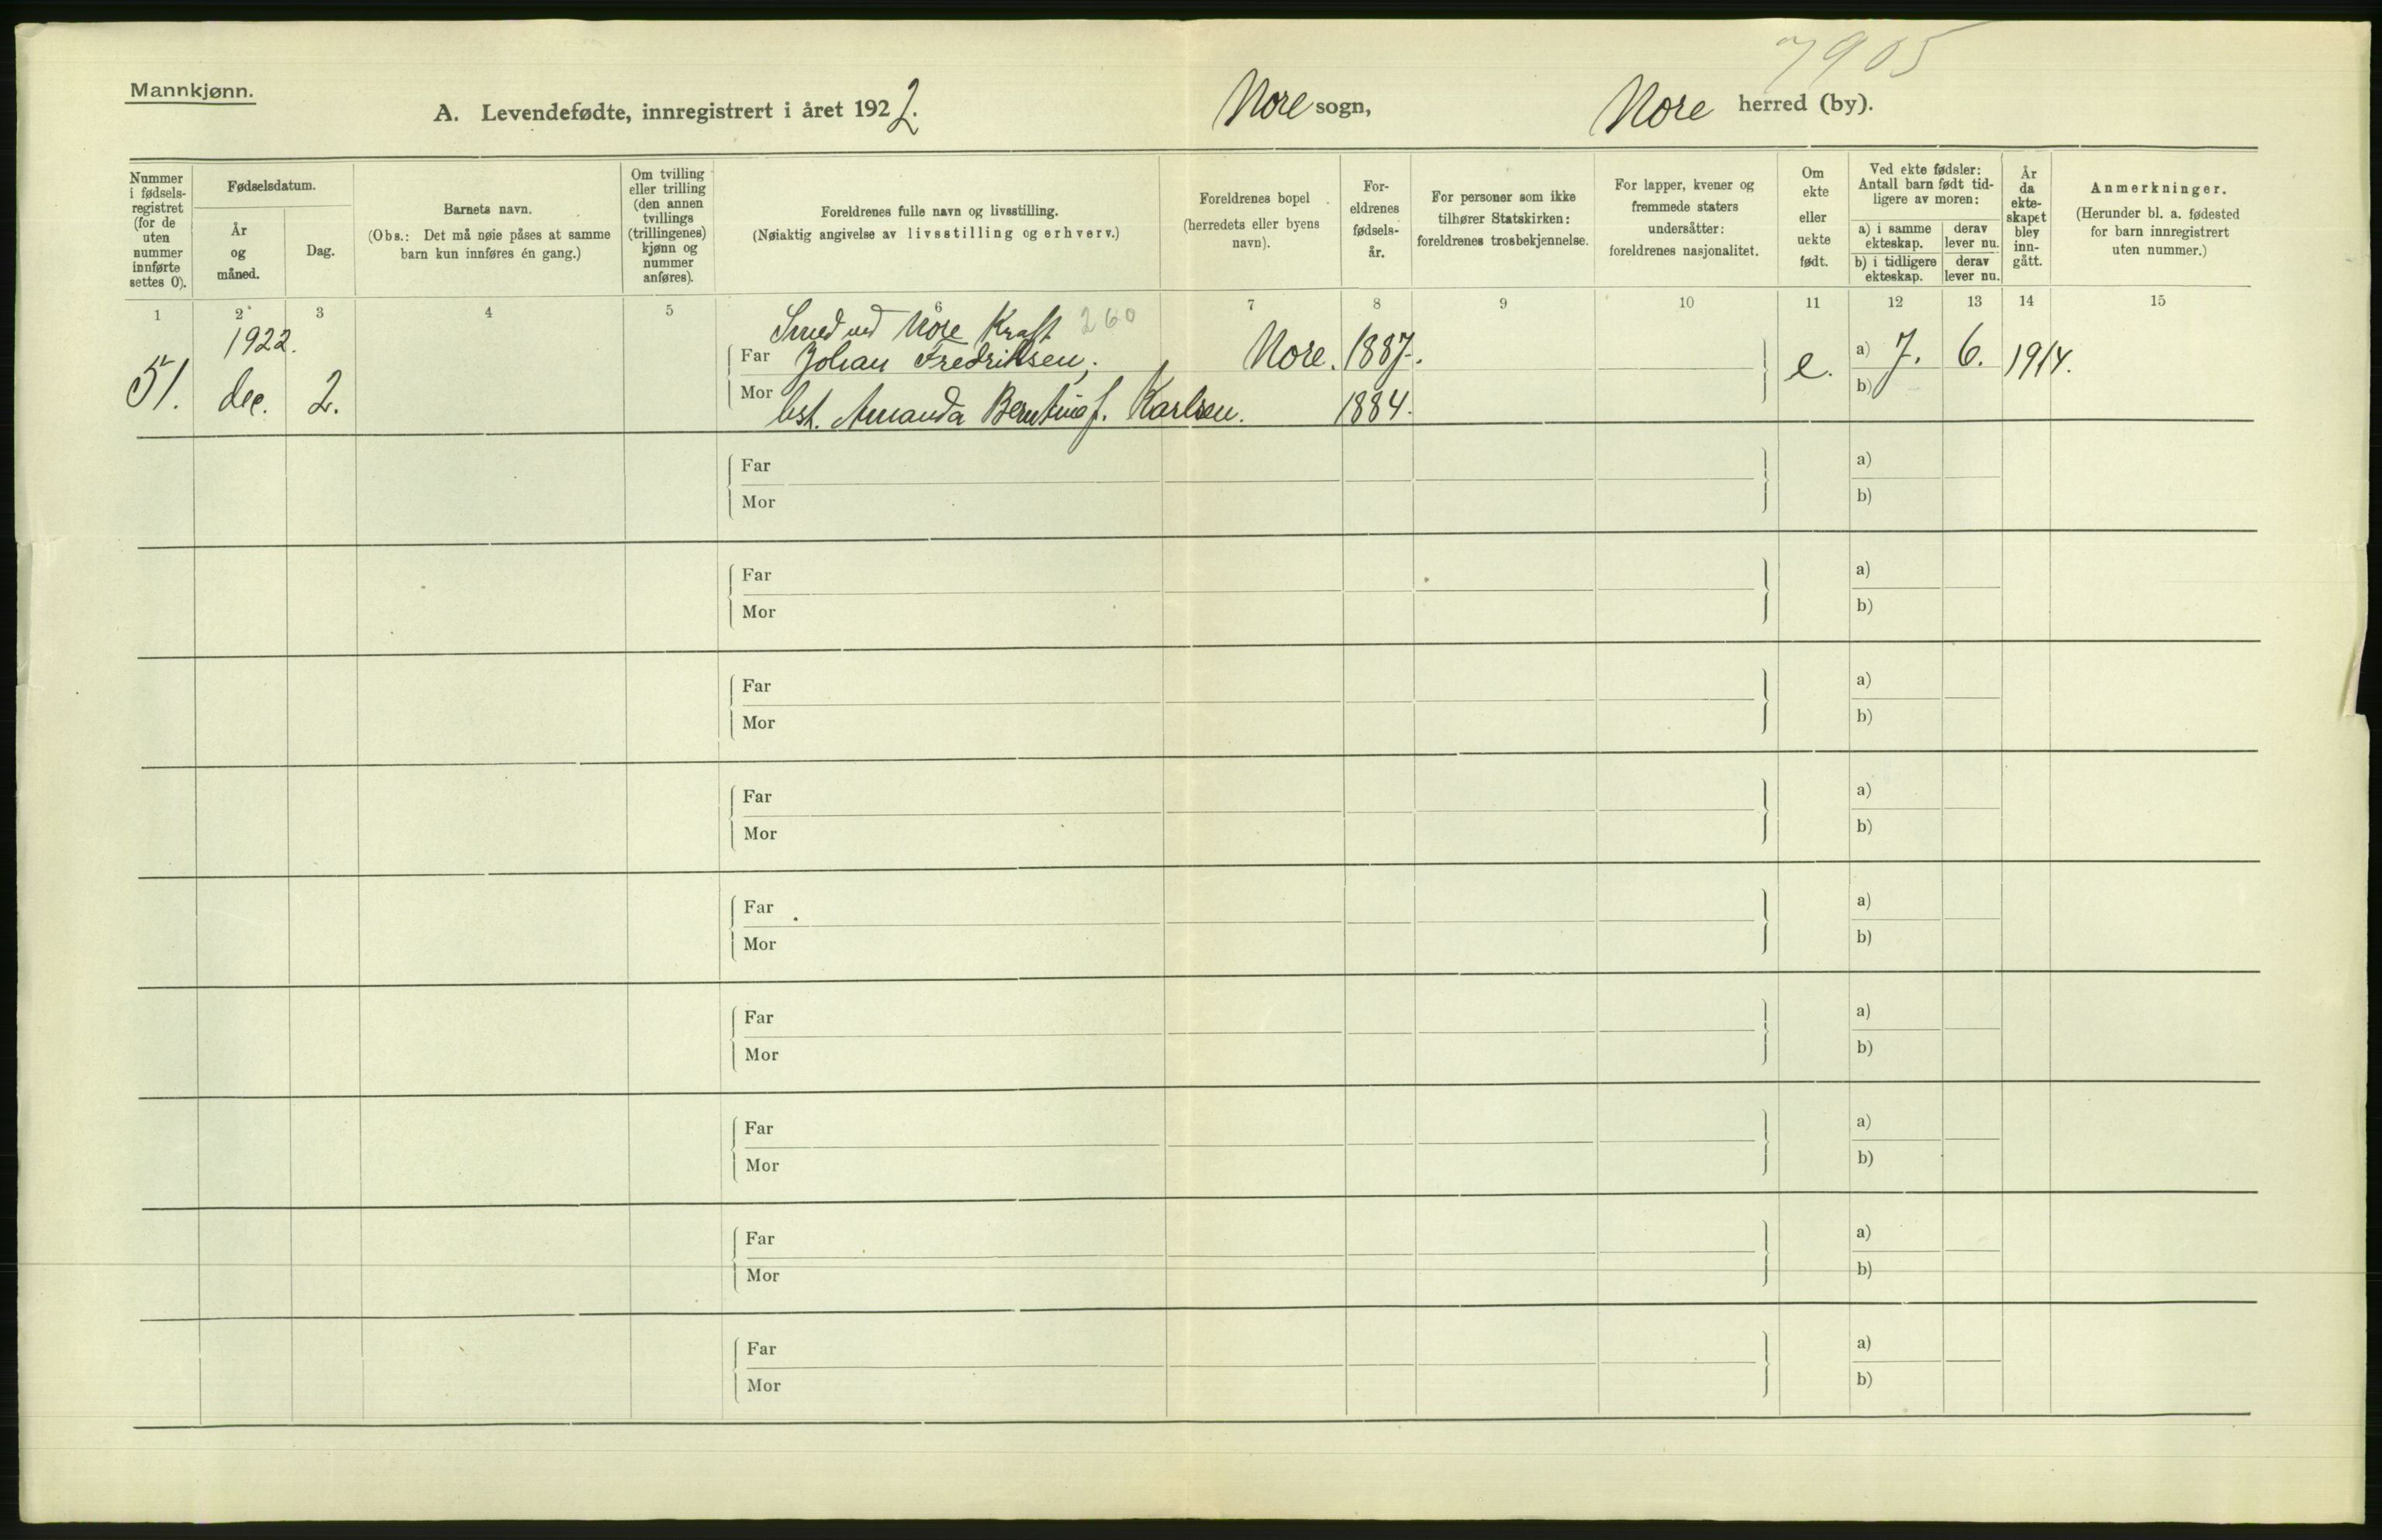 7905
Mannkjønn.
A. Levendefødte, innregistrert i året 1922. Nore sogn, Nore herred (by).
Nummer i fødsels- registret (for de uten nummer innførte settes 0).
Fødselsdatum.
År og måned.
Dag.
Barnets navn.
(Obs.: Det må nøie påses at samme barn kun innføres én gang.)
Om tvilling eller trilling (den annen tvillings (trillingenes) kjønn og nummer anføres).
Foreldrenes fulle navn og livsstilling.
(Nøiaktig angivelse av livsstilling og erhverv.)
Foreldrenes bopel (herredets eller byens navn).
For- eldrenes fødsels- år.
For personer som ikke tilhører Statskirken: foreldrenes trosbekjennelse.
For lapper, kvener og fremmede staters undersåtter: foreldrenes nasjonalitet.
Om ekte eller uekte født.
Ved ekte fødsler: Antall barn født tid- ligere av moren:
a) i samme ekteskap.
derav lever nu.
b) i tidligere ekteskap.
derav lever nu.
År da ekte- skapet blev inn- gått.
Anmerkninger.
(Herunder bl. a. fødested for barn innregistrert uten nummer.)
1 2 3 4 5 6 7 8 9 10 11 12 13 14 15
1922. Smed ved Nore Kraft 260
51. dec. 2. Far Johan Fredriksen, Nore. 1887. e. a) 7. 6. 1914.
Mor hst. Amanda Berntine f. Karlsen. 1884. b)
Far a)
Mor b)
Far a)
Mor b)
Far a)
Mor b)
Far a)
Mor b)
Far a)
Mor b)
Far a)
Mor b)
Far a)
Mor b)
Far a)
Mor b)
Far a)
Mor b)